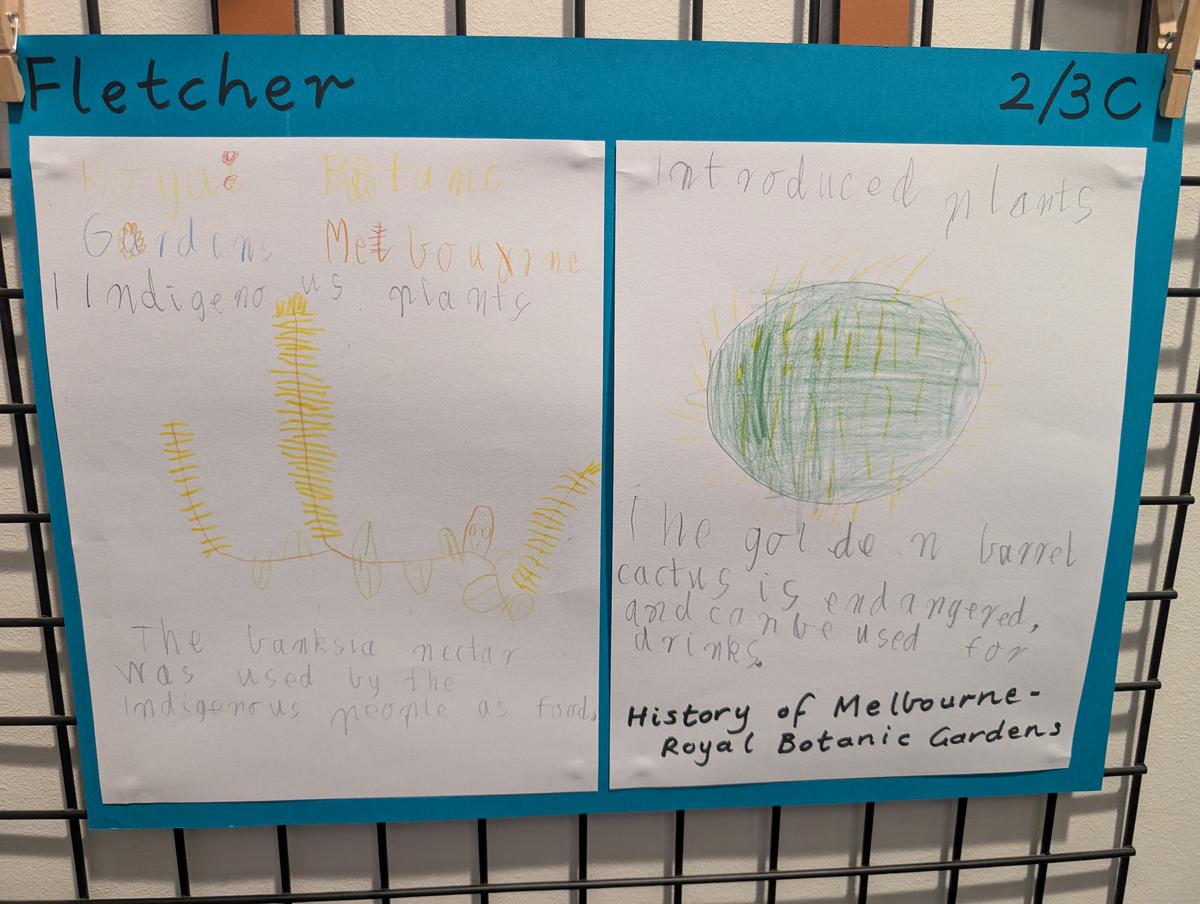 Fletcher
2/3C
Royal Botanic
Gardens Melbourne
Indigenous plants
The banksia nectar
was used by the
Indigenous people as food.
Introduced plants
The golden barrel
cactus is endangered,
and can be used for
drinks.
History of Melbourne-
Royal Botanic Gardens